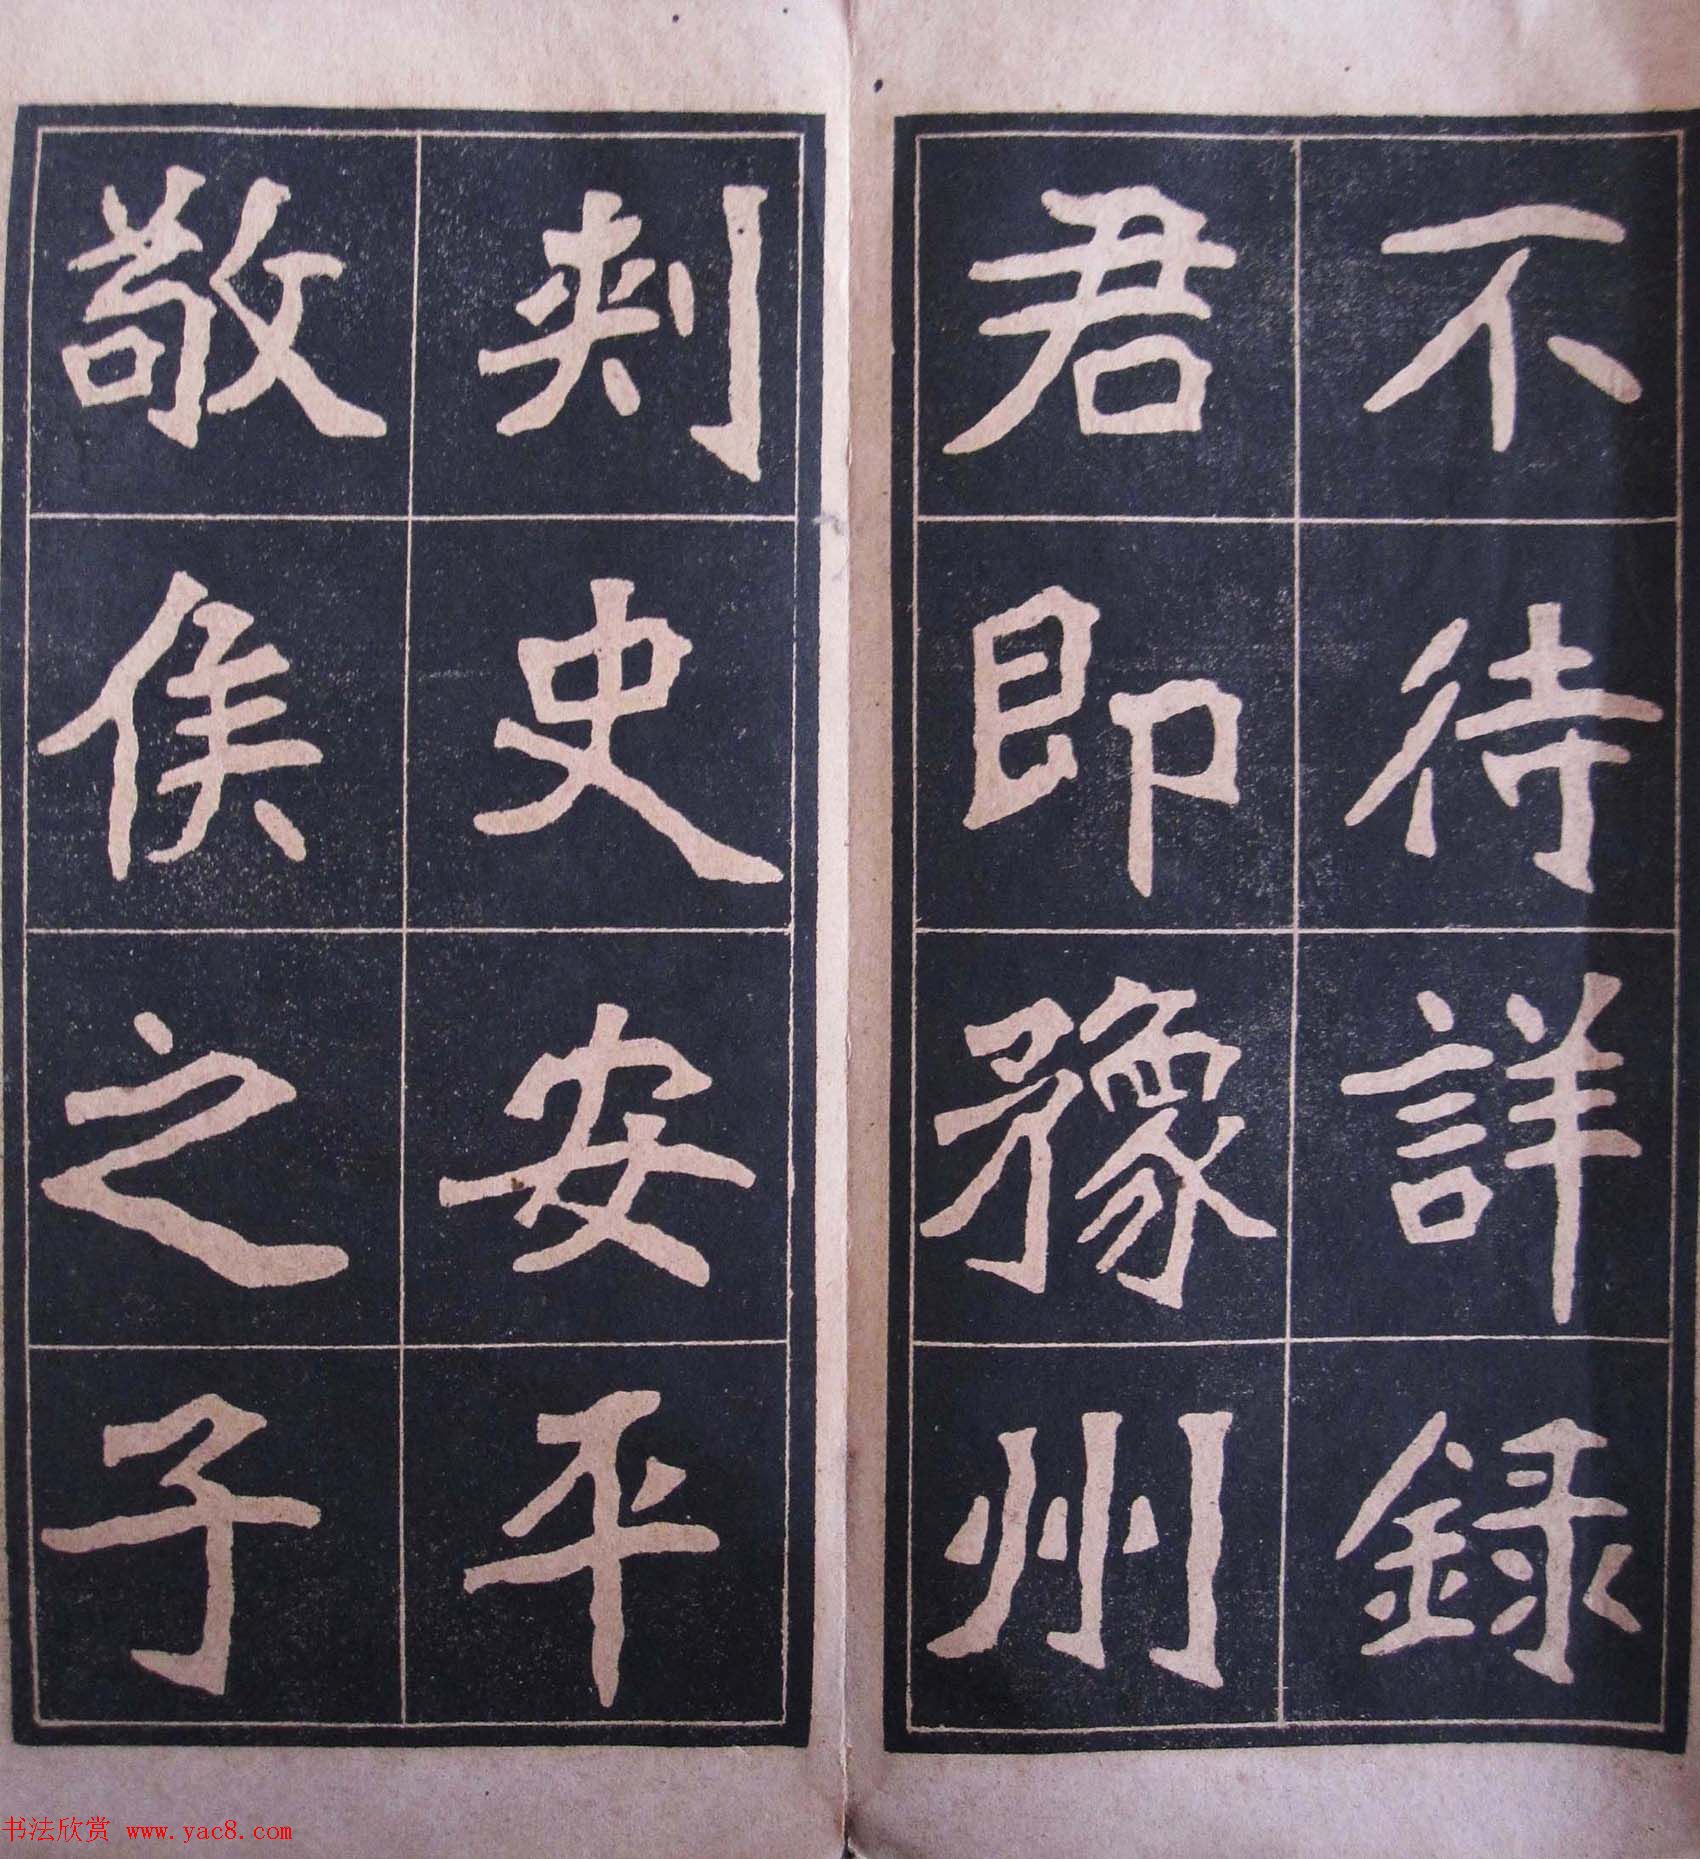 不待詳錄
君即豫州
刺史安平
敬侯之子
书法欣赏 www.yac8.com